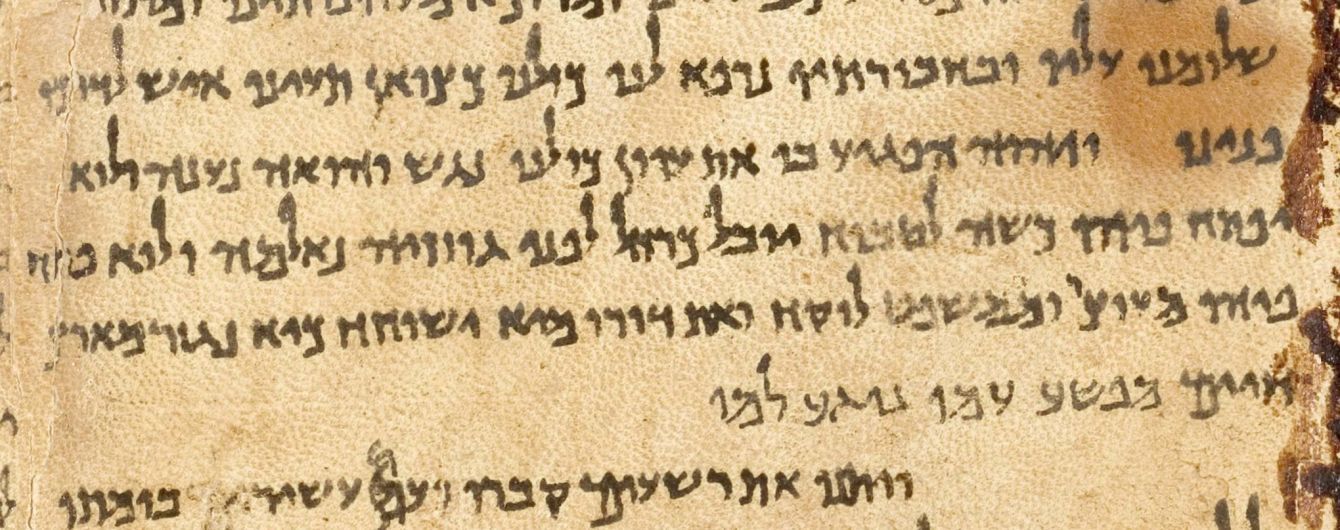 שלומנו עליו ובחבורתיו נרפא לנו כולנו כצואן תעינו איש לדרכו
פנינו ויהוה הפגיע בו את עוון כולנו נגש והואה נענה ולוא
יפתח פיהו כשה לטבוח יובל כרחל לפני גוזזיה נאלמה ולוא פתח
פיהו מעוצר וממשפט לוקח ואת דורו מיא ישוחח כיא נגזר מארץ
חיים מפשע עמו נוגע למו
ויתנו את רשעים קברו ועם בומתו